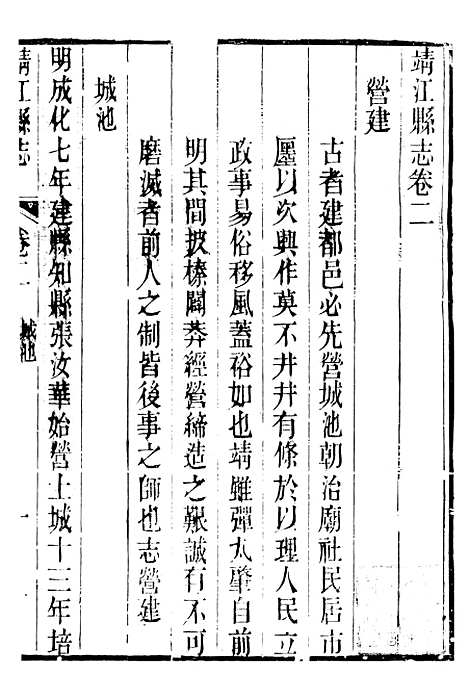 靖江縣志卷二
營建
古者建都邑必先營城池朝治廟社民居市
廛以次興作莫不井井有條於以理人民立
政事易俗移風蓋裕如也靖雖彈丸肇自前
明其間披榛闢莽經營締造之艱誠有不可
磨滅者前人之制皆後事之師也志營建
城池
明成化七年建縣知縣張汝華始營土城十三年培
靖江縣志
卷二 城池
一